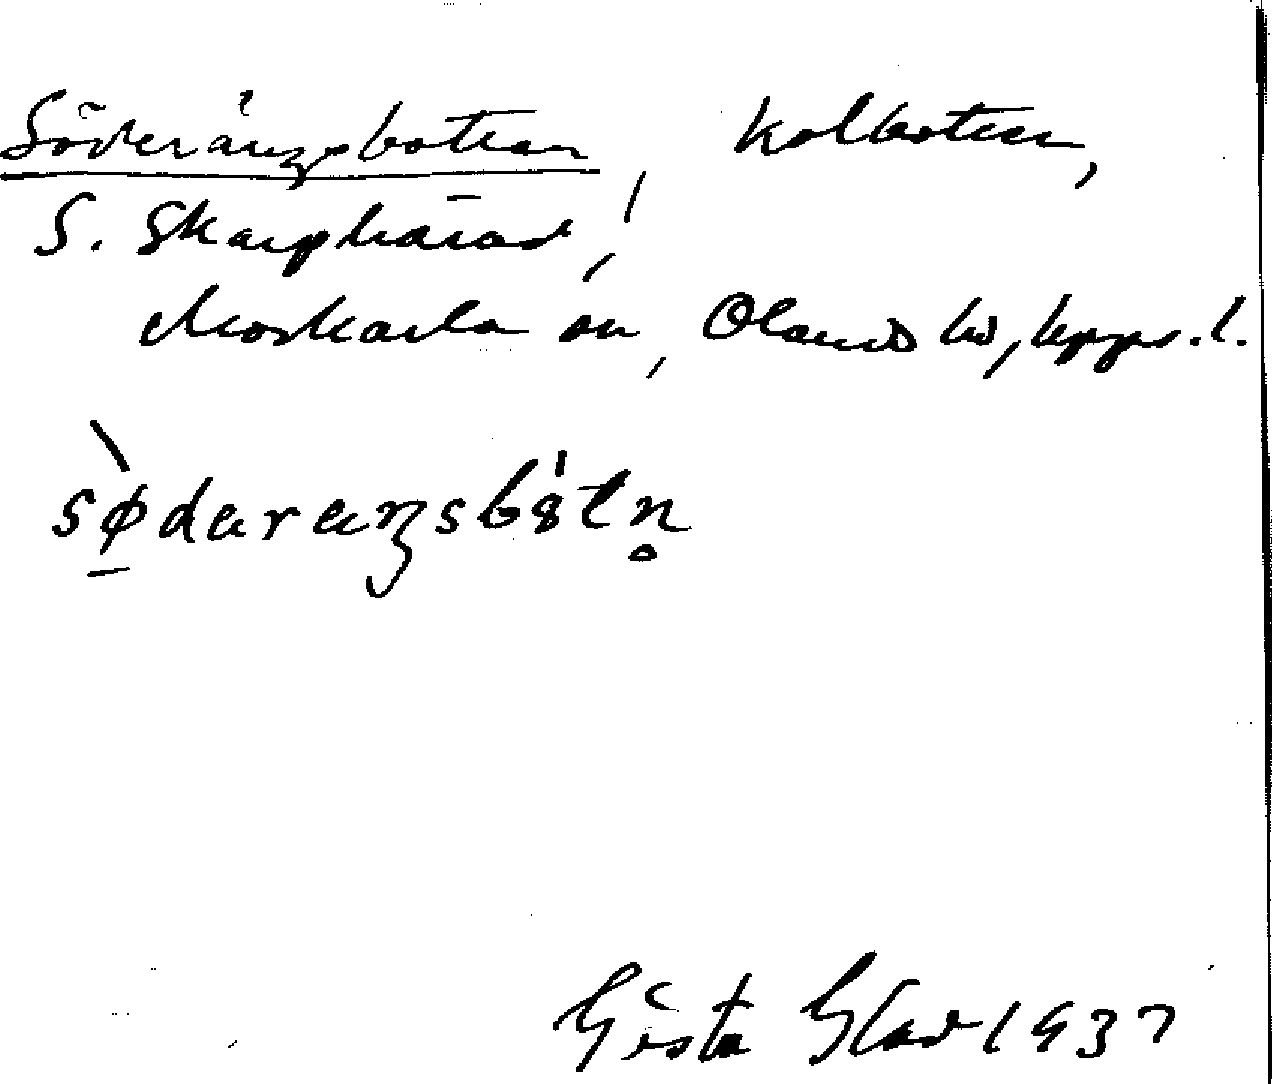 Söderängsbotten, kolbotten,
S. Skarphärad,
Morkarla sn, Olands hd, Upps. l.
sødaraŋsbåtn̥
Gösta Glad 1937